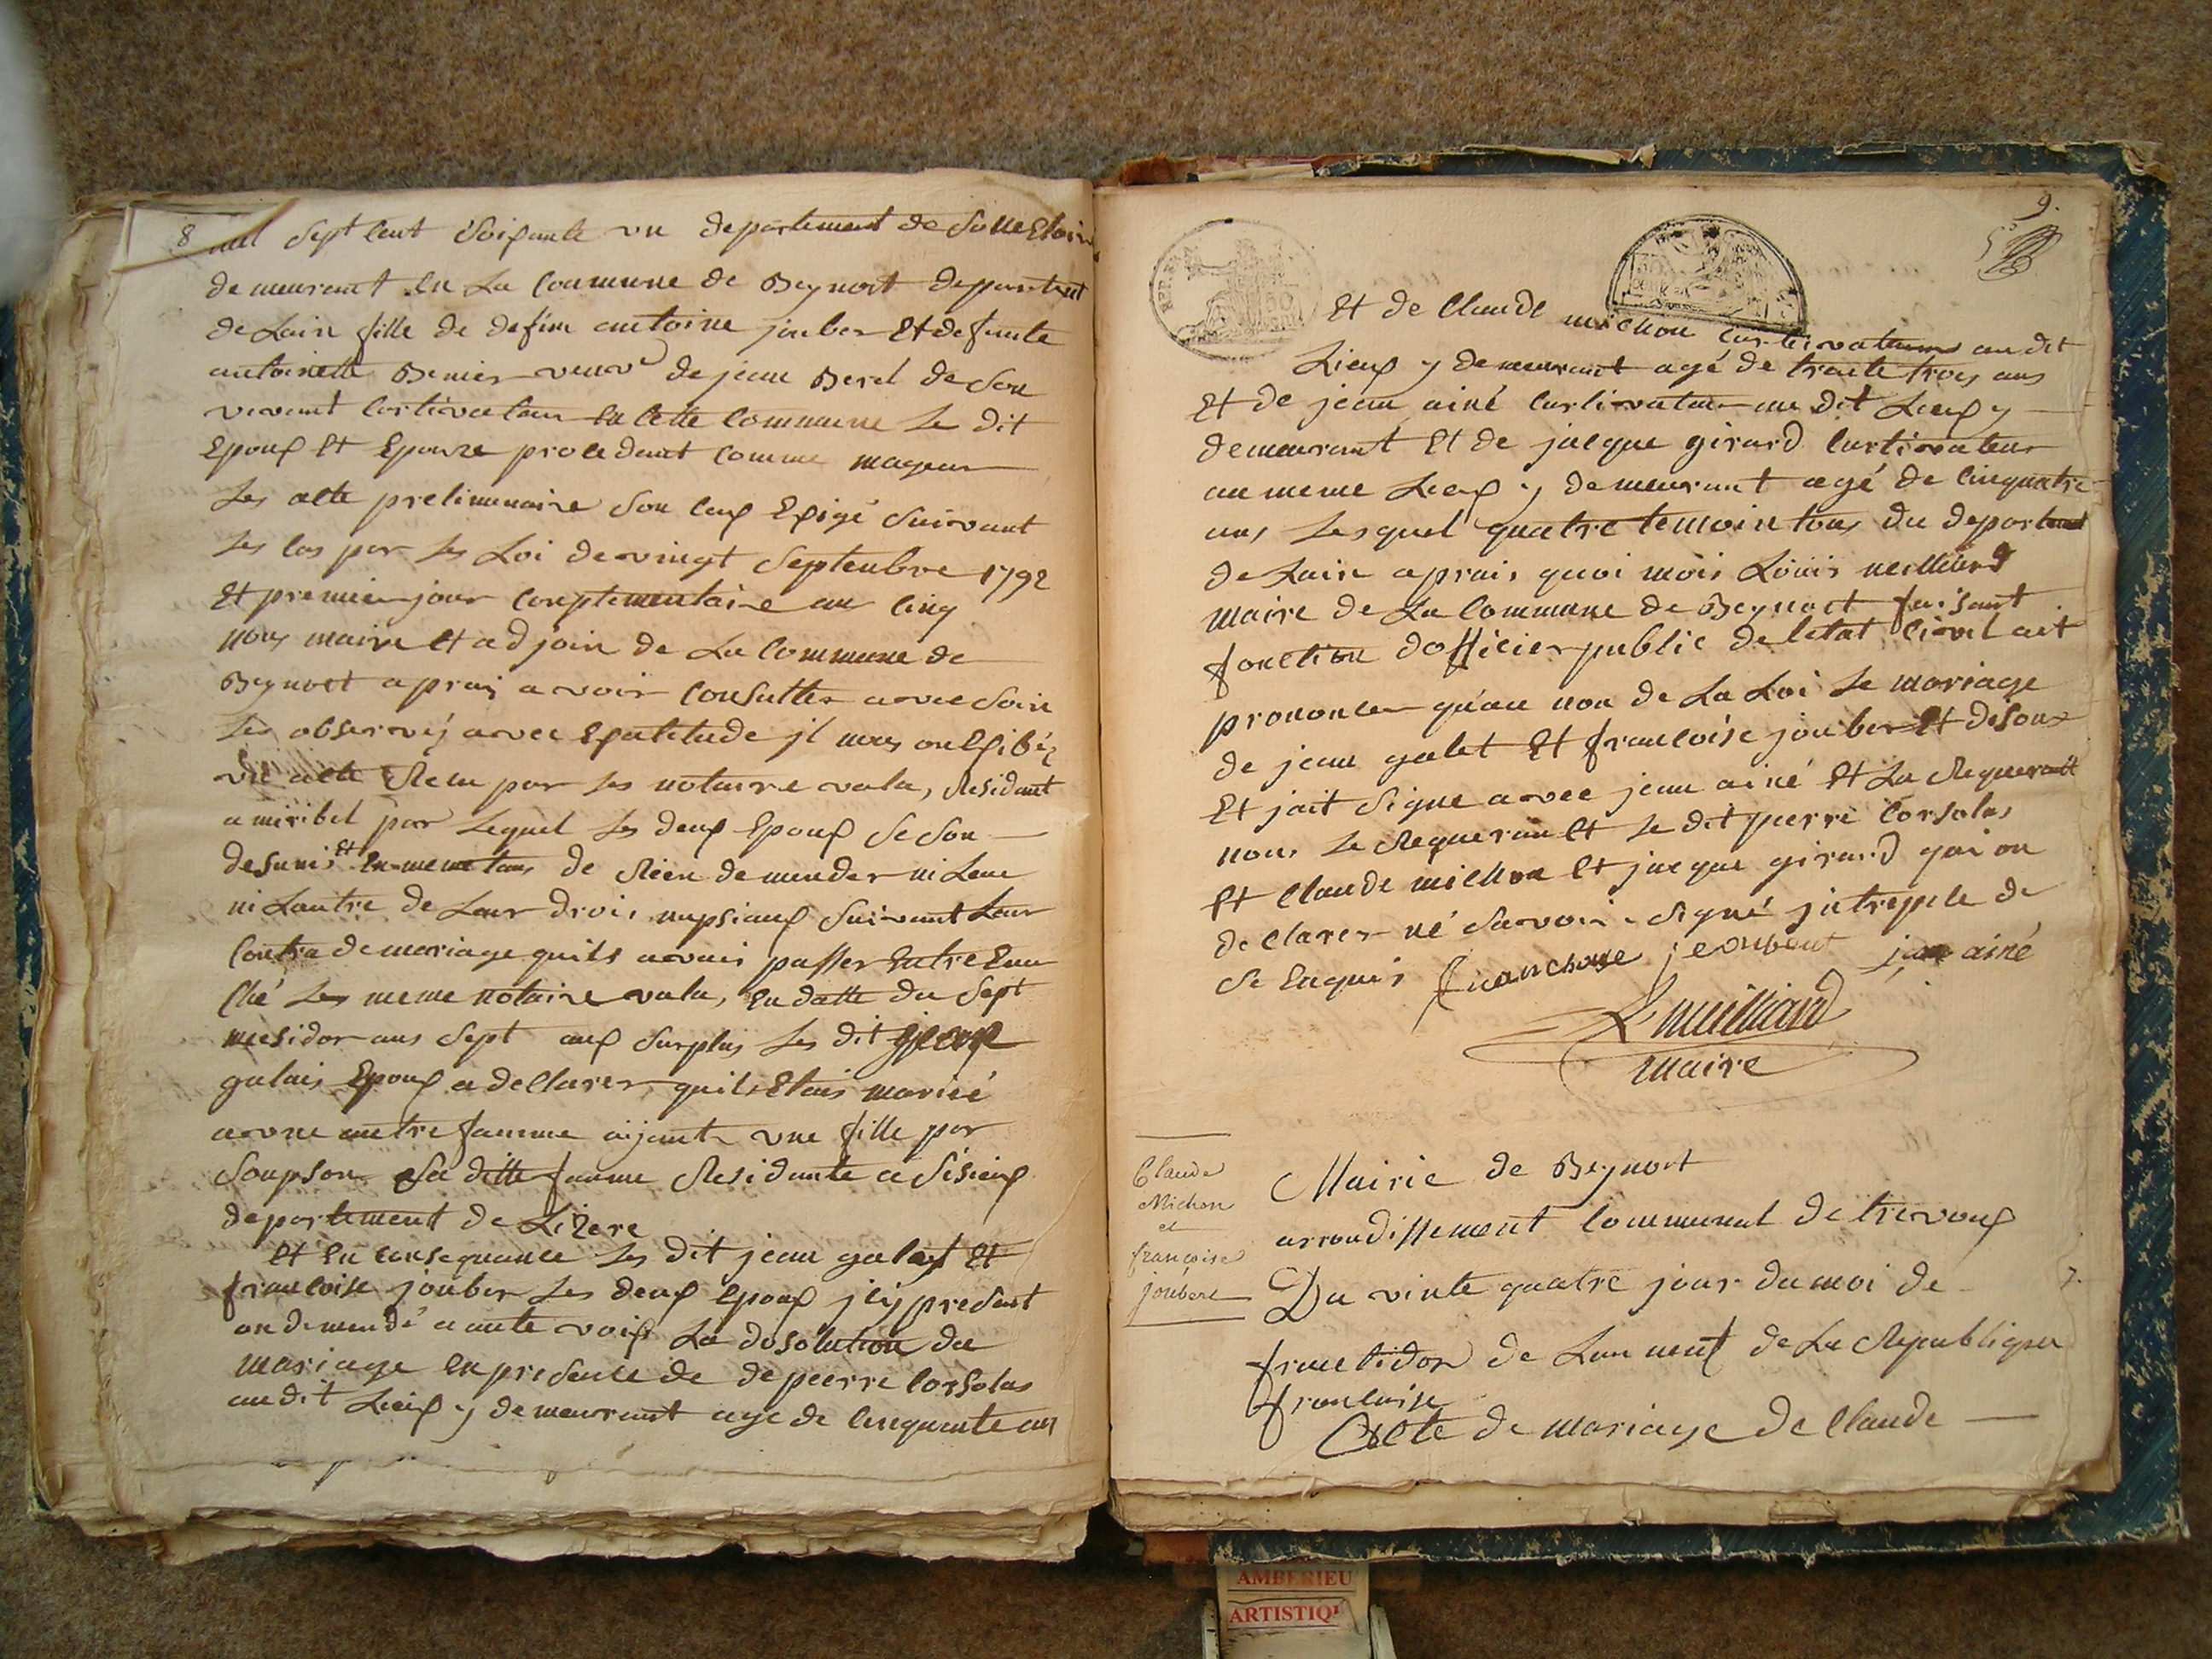 8
mil Sept Cent Soixante un departement de Sone Eloire
demeurant En La Commune de Beynost departemt
de Lain fille de defun antoine jouber Et defunte
antoinette Benier veuve de jean Berel de Son
vivant Cortivateur En Cette Commune Le dit
Epoux Et Epouze procedant Comme mageur
Les acte preliminaire Son Ceux Exigé Suivant
Les Cas par Les Loi de vingt Septenbre 1792
Et premier jour Conplementaire an Cinq
nous maire Et adjoin de La Commune de
Beynost aprai avoir Consulter avec Soin
Les observé avec Exatitude jl nous on Exibéz
un acte Recu par Les notaire vala, Residant
a miribel par Lequel Les deux Epoux Se Son
desunis Et En meme tans de Rien demender ni Leun
ni Lautre de Leur droi, nupsiaux Suivant Leur
Contra de mariage quils avais passer Entre Eux
Ché Les meme notaire vala, En datte du Sept
mesidor ans Sept aux Surplus Les dit jean
galais Epoux a declarer quils Etais mariéé
a une autre famme aijant une fille par
Soupson La ditte famme Residante a Sisieux
departement de Lizere
Et En Consequance Les dit jean galat Et
francoise jouber Les deux Epoux jciy present
on demendé a aute voix La dosolution du
mariage En presence de de pierre Corsolas
au dit Lieux y demeurant age de Cinquante an
9.
50
Et de Claude michon Cultivateur au dit
Lieux y demeurant agé de trente troi ans
Et de jean ainé Curtivateur au dit Lieux y
demeurant Et de jacque girard Curtivateur
au meme Lieux y demeurant agé de Cinquatre
ans Lesquel quatre temoin tous du departemt
de Lain aprai, quoi moi Loüis meilliard
maire de La Commune de Beynost faisant
fonction dofficier public de letat Civil ait
prononcer quau non de La Loi Le mariage
de jean galet Et francoise jouber Et desous
Et jait Signe avec jean ainé Et La Requerant
non Le Requeran Et Le dit pierre Corsolas
Et Claude michon Et jacque girard qui on
declarer né Savoir Signé jntrepele de
Se Enquis franchoise jeoubent jean ainé
L meilliard
maire
Claude
Michon
et
françoise
joubert
Mairie de Beynost
arrondissement Communal de trevoux
Du vinte quatre jour du moi de
fructidor de Lan neuf de La Republique
francaise
7.
Acte de mariage de Claude
AMBERIEU
ARTISTIQ